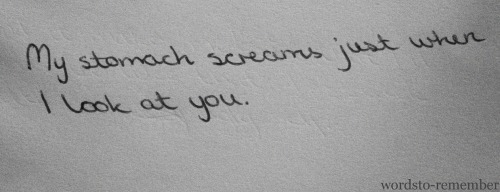 My stomach screams just when
I look at you.
wordsto-remember